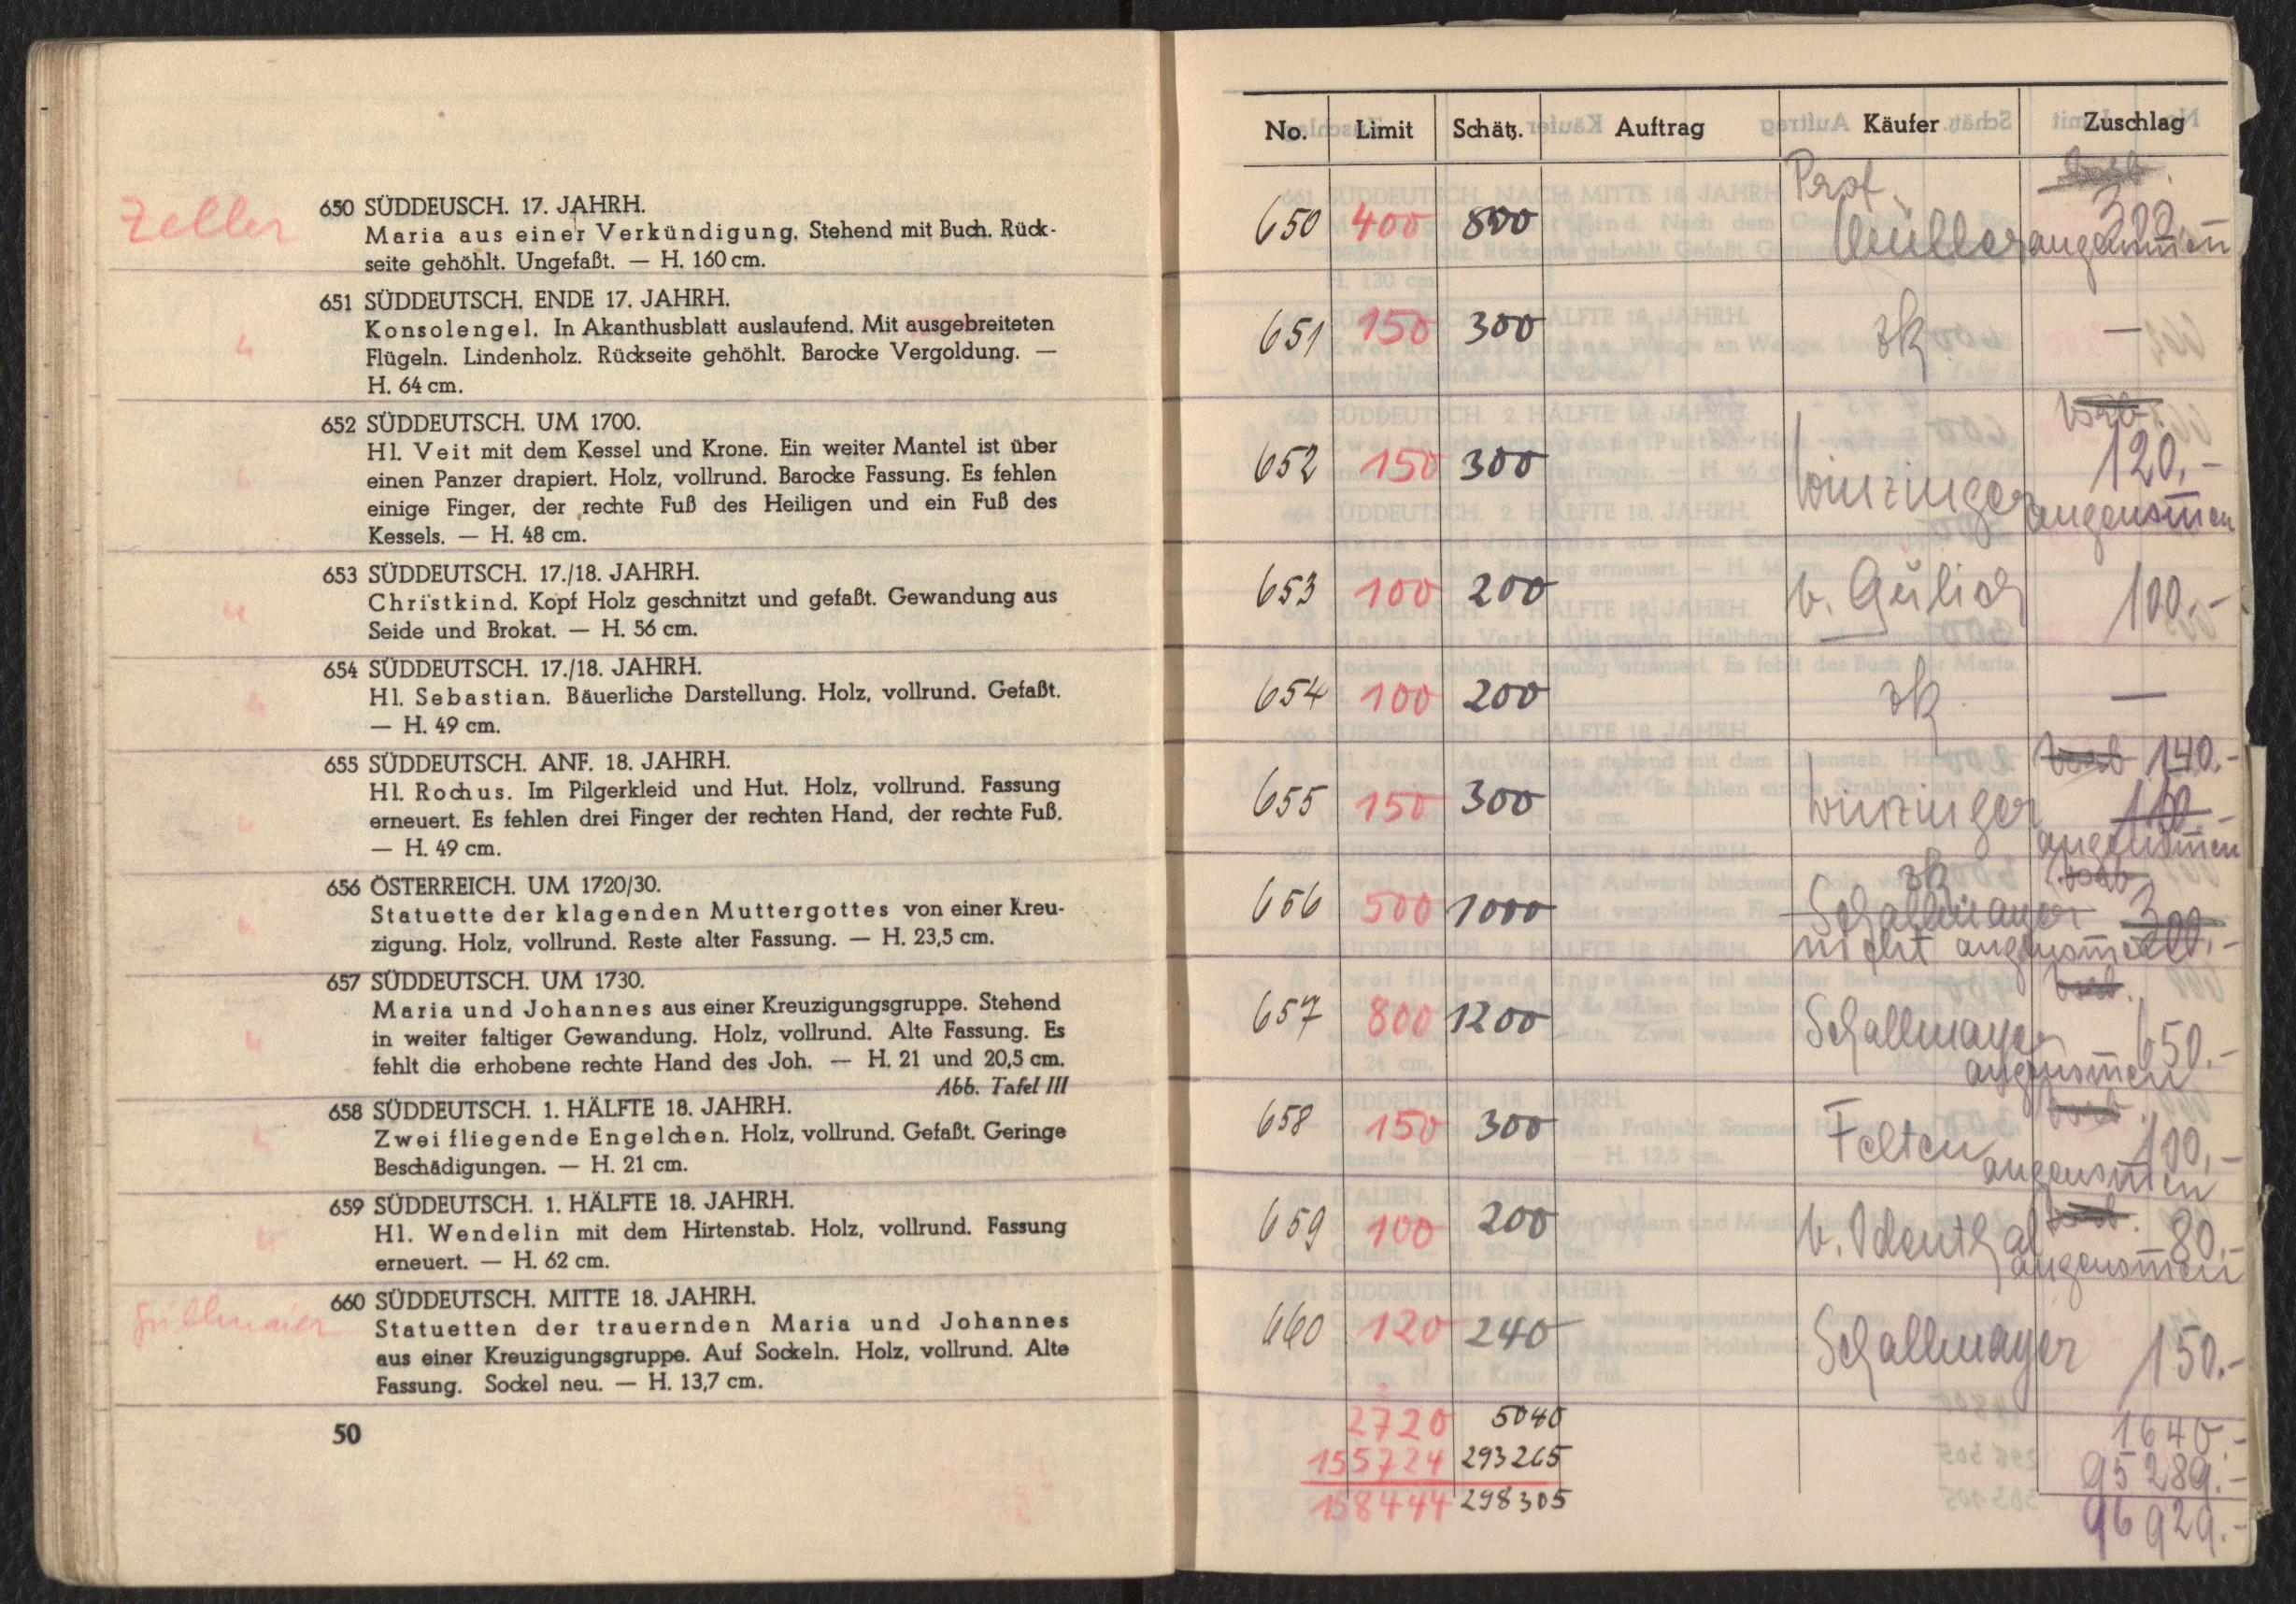 Zeller
650 SÜDDEUSCH. 17. JAHRH.
Maria aus einer Verkündigung. Stehend mit Buch. Rück-
seite gehöhlt. Ungefaßt. — H. 160 cm.
651 SÜDDEUTSCH. ENDE 17. JAHRH.
Konsolengel. In Akanthusblatt auslaufend. Mit ausgebreiteten
Flügeln. Lindenholz. Rückseite gehöhlt. Barocke Vergoldung. —
H. 64 cm.
652 SÜDDEUTSCH. UM 1700.
Hl. Veit mit dem Kessel und Krone. Ein weiter Mantel ist über
einen Panzer drapiert. Holz, vollrund. Barocke Fassung. Es fehlen
einige Finger, der rechte Fuß des Heiligen und ein Fuß des
Kessels. — H. 48 cm.
653 SÜDDEUTSCH. 17./18. JAHRH.
Christkind. Kopf Holz geschnitzt und gefaßt. Gewandung aus
Seide und Brokat. — H. 56 cm.
654 SÜDDEUTSCH. 17./18. JAHRH.
Hl. Sebastian. Bäuerliche Darstellung. Holz, vollrund. Gefaßt.
— H. 49 cm.
655 SÜDDEUTSCH. ANF. 18. JAHRH.
Hl. Rochus. Im Pilgerkleid und Hut. Holz, vollrund. Fassung
erneuert. Es fehlen drei Finger der rechten Hand, der rechte Fuß.
— H. 49 cm.
656 ÖSTERREICH. UM 1720/30.
Statuette der klagenden Muttergottes von einer Kreu-
zigung. Holz, vollrund. Reste alter Fassung. — H. 23,5 cm.
657 SÜDDEUTSCH. UM 1730.
Maria und Johannes aus einer Kreuzigungsgruppe. Stehend
in weiter faltiger Gewandung. Holz, vollrund. Alte Fassung. Es
fehlt die erhobene rechte Hand des Joh. — H. 21 und 20,5 cm.
Abb. Tafel III
658 SÜDDEUTSCH. 1. HÄLFTE 18. JAHRH.
Zwei fliegende Engelchen. Holz, vollrund. Gefaßt. Geringe
Beschädigungen. — H. 21 cm.
659 SÜDDEUTSCH. 1. HÄLFTE 18. JAHRH.
Hl. Wendelin mit dem Hirtenstab. Holz, vollrund. Fassung
erneuert. — H. 62 cm.
660 SÜDDEUTSCH. MITTE 18. JAHRH.
Statuetten der trauernden Maria und Johannes
aus einer Kreuzigungsgruppe. Auf Sockeln. Holz, vollrund. Alte
Fassung. Sockel neu. — H. 13,7 cm.
50
No. Limit Schätz. Auftrag Käufer Zuschlag
Prof. vorb.
650 400 800 Müller 300.- angenommen
651 150 300 zk —
vorb.
652 150 300 Winzinger 120.-
angenommen
653 100 200 v. Gülich 100.-
654 100 200 zk —
vorb 140.-
655 150 300 Winzinger
angenommen
zk vorb.
656 500 1000 Schallmayer 300.-
nicht angenommen
vorb.
657 800 1200 Schallmayer 650.-
angenommen
vorb.
658 150 300 Felten 100.-
angenommen
vorb.
659 100 200 80.-
angenommen
660 120 240 Schallmayer 150.-
2720 5040 1640.-
155724 293265 95289.-
158444 298305 96929.-